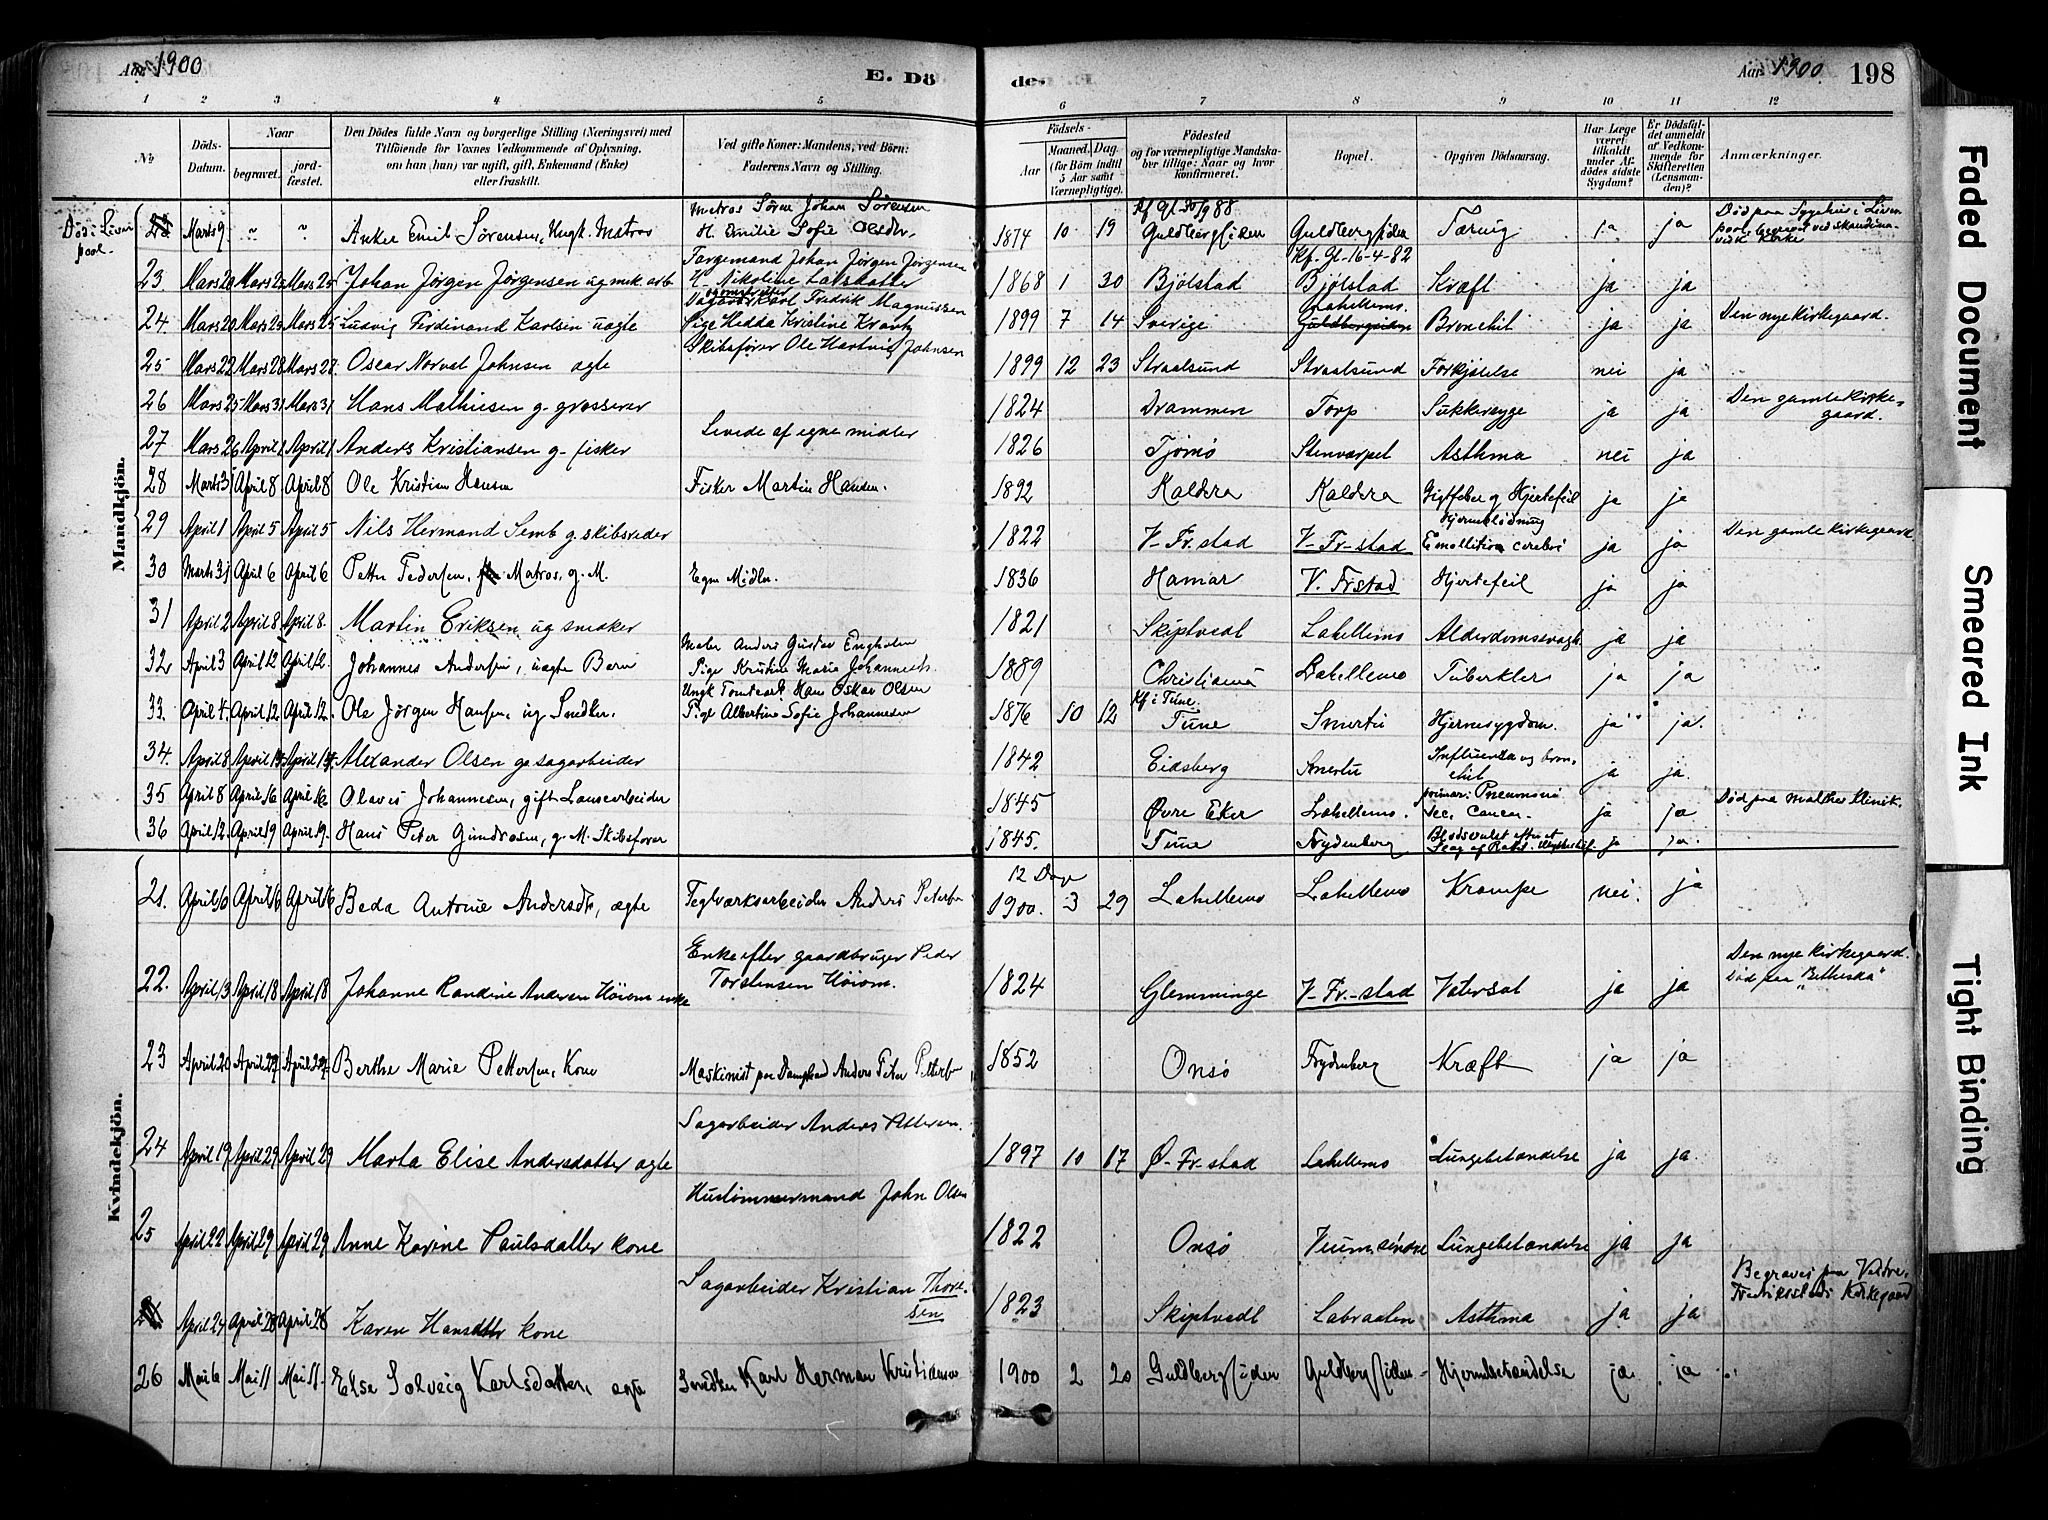 Aar 1900
E. Dö
des
Aar 1900.
198
1 2 3 4 5 6 7 8 9 10 11 12
No
Döds-Datum.
Naar
begravet.
jordfæstet.
Den Dödes fulde Navn og borgerlige Stilling (Næringsvei) med
Tilföiende for Voxnes Vedkommende af Oplysning,
om han (hun) var ugift, gift, Enkemand (Enke)
eller fraskilt.
Ved gifte Koner: Mandens, ved Börn:
Faderens Navn og Stilling.
Födsels-
Aar
Maaned. Dag.
(for Börn indtil
5 Aar samt
Værnepligtige).
Födested
og for værnepligtige Mandskaber tillige: Naar og hvor
konfirmeret.
Bopæl.
Opgiven Dödsaarsag.
Har Læge
været
tilkaldt
under Afdödes sidste
Sygdom?
Er Dödsfaldet anmeldt
af Vedkommende for
Skifteretten
(Lensmanden)?
Anmærkninger.
Mandkjön.
Död i Liverpool.
Marts 9. Anker Emil Sörensen, Ungk. Matros Matros Sören Johan Sörensen H. Emilie Sofie 1874 10 19 Guldbergsiden Guldbergsiden Tæring ja ja Död paa Sygehus i Liverpool, begravet ved skandinavisk Kirke
23 Mars 20 Mars 25 Mars 25 Johan Jörgen Jörgensen ug mek. arb Formand Johan Jörgen Jörgensen H. Nikoline Larsdatter 1868 1 30 Bjölstad Kf. Gl. 16-4-82 Bjölstad Kræft ja ja
24 Mars 20 Mars 25 Mars 25 Ludvig Ferdinand Karlsen uægte Karl Fredrik Magnussen Pige Hedda Kristine Krantz 1899 7 14 Sverige Lahellemo. Guldbergsiden Bronchit ja ja Den nye Kirkegaard.
25 Mars 22 Mars 28 Mars 28. Oscar Norval Johnsen ægte Skibsförer Ole Hartvig Johnsen 1899 12 23 Straalsund Straalsund Forkjölelse nei ja
26 Mars 25 Mars 31 Mars 31 Hans Mathiesen g. grosserer 1824 Drammen Torp Sukkersyge ja ja Den gamle Kirkegaard.
27 Mars 26 April 1 April 1 Anders Kristiansen g. fisker Levede af egne midler 1826 Tjömö Stenvarpet Asthma nei ja
28 Marts 31 April 8 April 8 Ole Kristian Hansen Fisker Martin Hansen. 1892 Kaldera Kaldera Gigtfeber og Hjertefeil ja ja
29 April 1 April 5 April 5 Nils Hermand Semb g. skibsreder 1822 V-Fr. stad V-Fr-stad Hjerneblödning Emollition cerebri ja ja Den gamle Kirkegaard
30 Marts 31 April 6 April 6 Petter Pedersen, Matros, g. M. Egne Midler. 1836 Hamar V. Frstad Hjertefeil ja ja
31 April 2 April 8 April 8. Martin Eriksen ug snekker 1821 Skiptvedt Lahellemo Alderdomssvagh. ja ja
32 April 3 April 12 April 12. Johannes Andersen, uægte Barn Maler Anders Gustav Engholm Pige Kristine Marie Johannesd. 1889 Christiania Lahellemo Tuberkler ja ja
33. April 4. April 12 April 12. Ole Jörgen Hansen, ug Snedker. Ungk Tomtearb Hans Oskar Olsen Pige Albertine Sofie Johannesen 1876 10 12 Kf. i Tune. Tune Smertu Hjernesygdom. ja ja.
34. April 8 April 14 April 14. Alexander Olsen g. sagarbeider 1842 Eidsberg Smertu Influensa og bronchit ja ja.
35 April 8 April 16 April 16 Olaves Johannesen, gift Lansearbeider 1845 Øvre Eker Lahellemo. primær: Pneumoni sec. Cancer. ja ja Död paa Malthes Klinik.
36 April 12. April 19 April 19. Hans Peter Gundersen, g. M. Skibsförer 1845. Tune Frydenberg ja ja.
Kvindekjön.
21. April 10 April 16 April 16 Beda Antonie Andersdt, ægte Teglværksarbeider Anders Petersen 12 Dage 1900. 3 29 Lahellemo Lahellemo Krampe nei. ja
22. April 13 April 18 April 18 Johanne Randine Andersen Höiom enke Enke efter gaardbruger Peder Torstensen Höiom. 1824 Glemminge V-Fr.-stad Vatersot ja ja Den nye Kirkegaard. Död paa "Bethesda"
23 April 20 April 27 April 27. Berthe Marie Pettersen, Kone Maskinist paa Dampbaad Anders Peter Pettersen 1852 Onsö Frydenberg Kræft ja ja
24 April 19 April 29 April 29 Marta Elise Andersdatter ægte Sagarbeider Anders Pettersen. 1897 10 17 Ø-Fr. stad Lahellemo Lungebetændelse ja ja.
25 April 22 April 29 April 29 Anne Karine Paulsdatter kone Hustömmermand John Olsen 1822 Onsö Veum söndre Lungebetændelse ja ja
April 24 April 28 April 28 Karen Hansdatter kone Sagarbeider Kristian Thoresen 1823 Skiptvedt Labraaten Asthma ja ja Begraves paa Vestre Fredriksstads Kirkegaard
26 Mai 6 Mai 11 Mai 11. Else Solveig Karlsdatter, ægte Snedker Karl Herman Kristiansen 1900 2 20 Guldbergsiden Guldbergsiden Hjernebetændelse ja. ja
Faded Document
Smeared Ink
Tight Binding